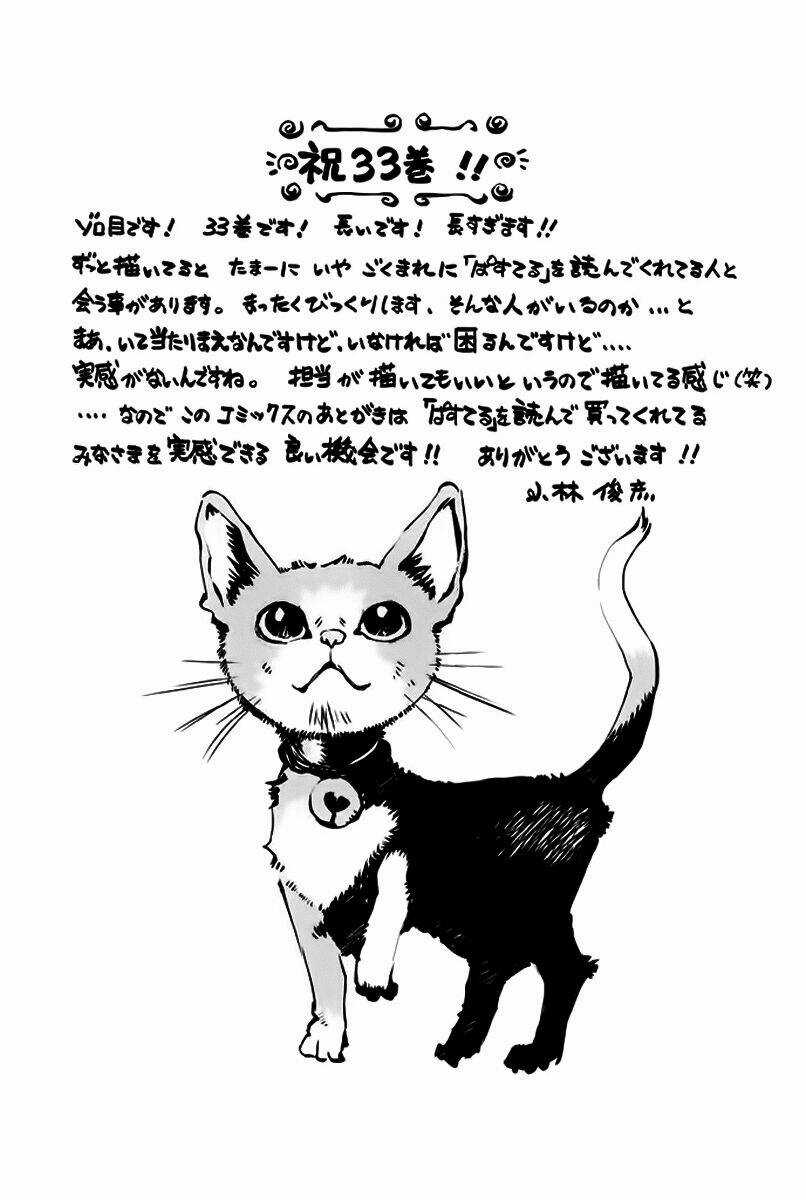 祝33巻!!
ゾロ目です! 33巻です! 長いです! 長すぎます!!
ずっと描いてると たまーに いや ごくまれに「ぱすてる」を読んでくれてる人と
会う事があります。まったくびっくりします、そんな人がいるのか…と
まあ、いて当たりまえなんですけど、いなければ困るんですけど‥‥
実感がないんですね。 担当が描いてもいいというので描いてる感じ(笑)
‥‥なのでこのコミックスのあとがきは「ぱすてる」を読んで買ってくれてる
みなさまを実感できる良い機会です!! ありがとうございます!!
小林俊彦